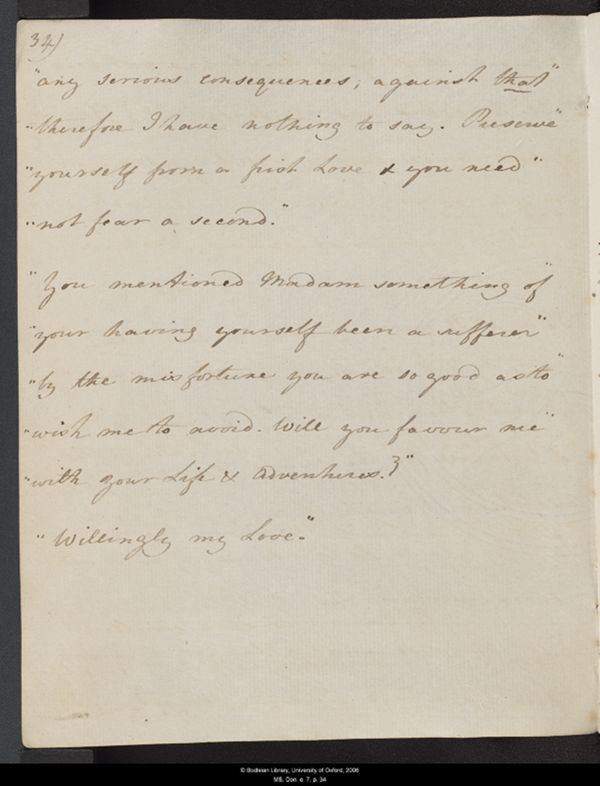 34)
"any serious consequences; against that"
"therefore I have nothing to say. Preserve"
"yourself from a first Love & you need"
"not fear a second."
"You mentioned Madam something of"
"your having yourself been a sufferer"
"by the misfortune you are so good as to"
"wish me to avoid. Will you favour me"
"with your Life & Adventures.?"
"Willingly my Love."
© Bodleian Library, University of Oxford, 2006
MS. Don. e. 7, p. 34